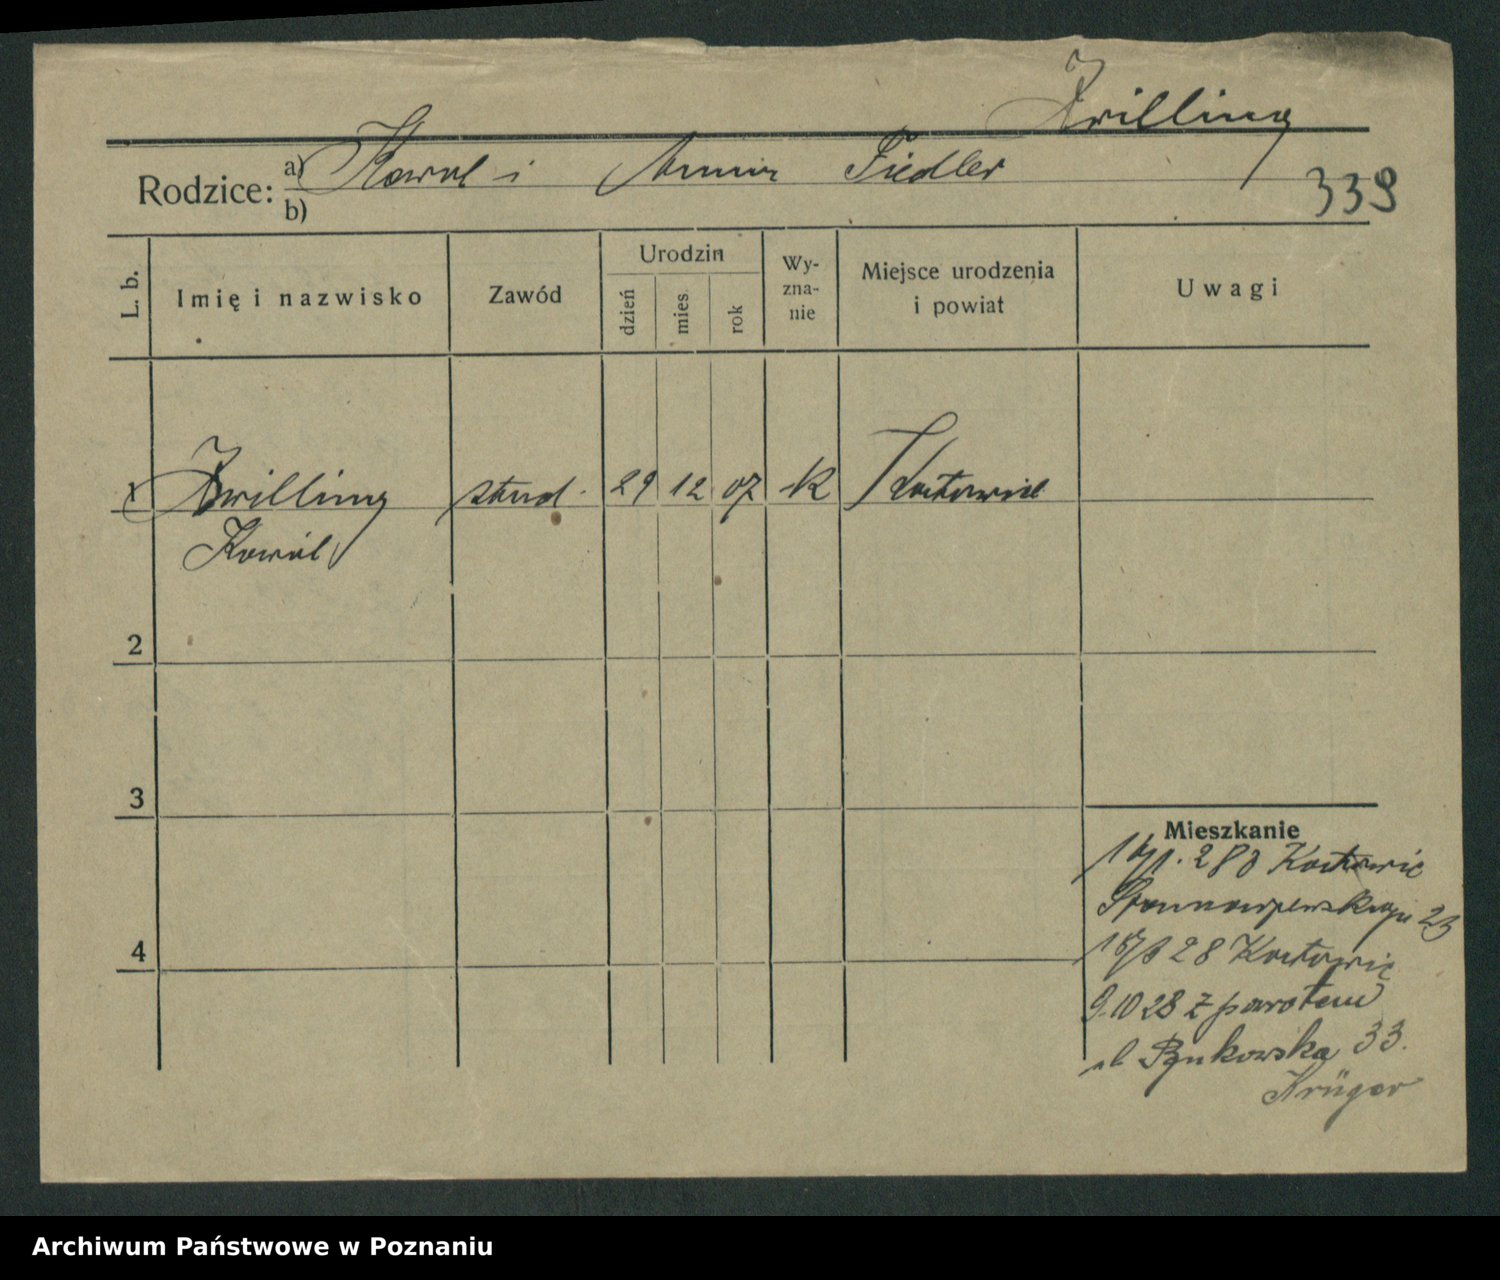 Zwilling
Rodzice: a) Karol i Anna Fiedler
b)
339
L. b.
Imię i nazwisko
Zawód
Urodzin
dzień
mies.
rok
Wy-
zna-
nie
Miejsce urodzenia
i powiat
Uwagi
1 Zwilling stud. 29 12 07 k Katowice
Karol
2
3
4
Mieszkanie
28 Katowic
23
28 Katowic
9.10 28 z parotem
ul Bukowska 33.
Krüger
Archiwum Państwowe w Poznaniu